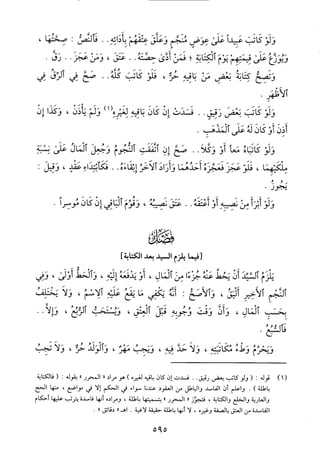 وَلَوْ كَاتَبَ عَبِيداً عَلَىٰ عِوَضٍ مُنَجَّمٍ وَعَلَّقَ عِتْقَهُمْ بِأَدَائِهِ.. فَٱلنَّصُّ : صِحَّتُهَا ،
وَيُوَزَّعُ عَلَىٰ قِيمَتِهِمْ يَوْمَ ٱلْكِتَابَةِ ؛ فَمَنْ أَدَّىٰ حِصَّتَهُ.. عَتَقَ ، وَمَنْ عَجَزَ.. رَقَّ .
وَتَصِحُّ كِتَابَةُ بَعْضِ مَنْ بَاقِيهِ حُرٌّ ، فَلَوْ كَاتَبَ كُلَّهُ.. صَحَّ فِي ٱلرِّقِّ فِي
ٱلأَظْهَرِ .
وَلَوْ كَاتَبَ بَعْضَ رَقِيقٍ.. فَسَدَتْ إِنْ كَانَ بَاقِيهِ لِغَيْرِهِ(١) وَلَمْ يَأْذَنْ ، وَكَذَا إِنْ
أَذِنَ أَوْ كَانَ لَهُ عَلَى ٱلْمَذْهَبِ .
وَلَوْ كَاتَبَاهُ مَعاً أَوْ وَكَّلاَ.. صَحَّ إِنِ ٱتَّفَقَتِ ٱلنُّجُومُ وَجُعِلَ ٱلْمَالُ عَلَىٰ نِسْبَةِ
مِلْكَيْهِمَا ، فَلَوْ عَجَزَ فَعَجَّزَهُ أَحَدُهُمَا وَأَرَادَ ٱلآخَرُ إِبْقَاءَهُ.. فَكَٱبْتِدَاءِ عَقْدٍ ، وَقِيلَ :
يَجُوزُ .
وَلَوْ أَبْرَأَ مِنْ نَصِيبِهِ أَوْ أَعْتَقَهُ.. عَتَقَ نَصِيبُهُ ، وَقُوِّمَ ٱلْبَاقِي إِنْ كَانَ مُوسِراً .
فَصْلٌ
[فيما يلزم السيد بعد الكتابة]
يَلْزَمُ ٱلسَّيِّدَ أَنْ يَحُطَّ عَنْهُ جُزْءاً مِنَ ٱلْمَالِ ، أَوْ يَدْفَعَهُ إِلَيْهِ ، وَٱلْحَطُّ أَوْلَىٰ ، وَفِي
ٱلنَّجْمِ ٱلأَخِيرِ أَلْيَقُ ، وَٱلأَصَحُّ : أَنَّهُ يَكْفِي مَا يَقَعُ عَلَيْهِ ٱلاِسْمُ ، وَلاَ يَخْتَلِفُ
بِحَسَبِ ٱلْمَالِ ، وَأَنَّ وَقْتَ وُجُوبِهِ قَبْلَ ٱلْعِتْقِ ، وَيُسْتَحَبُّ ٱلرُّبُعُ ، وَإِلاَّ..
فَٱلسُّبُعُ .
وَيَحْرُمُ وَطْءُ مُكَاتَبَتِهِ ، وَلاَ حَدَّ فِيهِ ، وَيَجِبُ مَهْرٌ ، وَٱلْوَلَدُ حُرٌّ ، وَلاَ تَجِبُ
(١) قوله : ( ولو كاتب بعض رقيق.. فسدت إن كان باقيه لغيره ) هو مراد « المحرر » بقوله : ( فالكتابة
باطلة ) . واعلم أن الفاسد والباطل من العقود عندنا سواء في الحكم إلا في مواضع ، منها الحج
والعارية والخلع والكتابة ، فتجوَّز « المحرر » بتسميتها باطلة ، ومراده أنها فاسدة يترتب عليها أحكام
الفاسدة من العتق بالصفة وغيره ، لا أنها باطلة حقيقة لاغية . اهـ « دقائق » .
٥٩٥